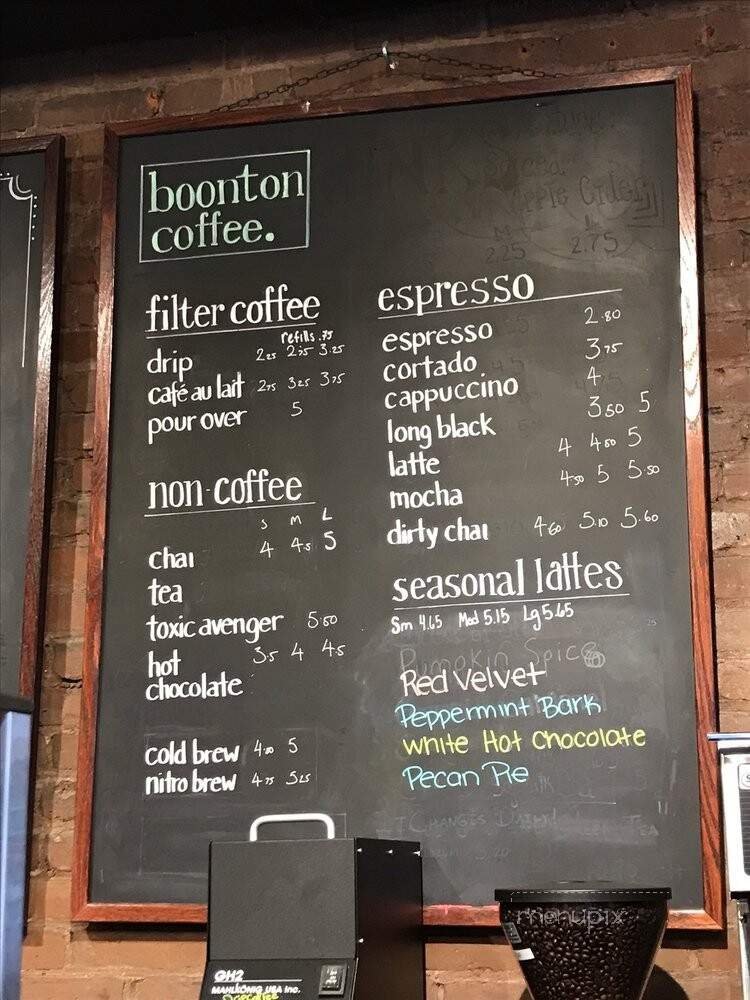 boonton
coffee.
Apple Cider
2.25 2.75
filter coffee
refills .75
drip 2.25 2.75 3.25
café au lait 2.75 3.25 3.75
pour over 5
non-coffee
S M L
chai 4 4.5 5
tea
toxic avenger 5.50
hot 3.5 4 4.5
chocolate
cold brew 5
nitro brew 4.75 5.25
espresso
espresso 2.80
cortado 3.75
cappuccino 4
long black 3.50 5
latte 4 4.50 5
mocha 4.50 5 5.50
dirty chai 4.60 5.10 5.60
seasonal lattes
Sm 4.65 Med 5.15 Lg 5.65
Pumpkin Spice
Red Velvet
Peppermint Bark
White Hot Chocolate
Pecan Pie
Changes Daily!
GH2
MAHLKÖNIG USA Inc.
menupix